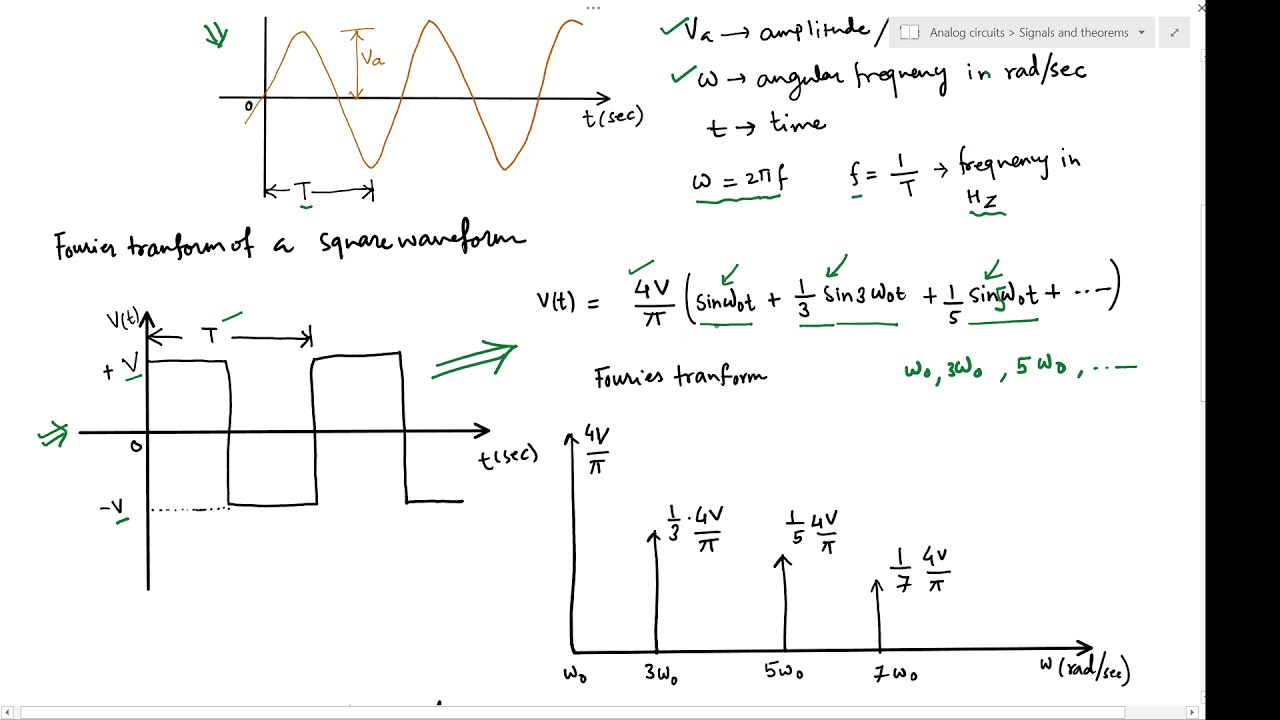 Va → amplitude/
Analog circuits > Signals and theorems
Va
ω → angular frequency in rad/sec
0
t(sec)
t → time
T
ω = 2πf f = 1/T → frequency in
HZ
Fourier tranform of a square waveform
V(t) = 4V/π (sinω₀t + 1/3 sin3ω₀t + 1/5 sin5ω₀t + ...)
V(t)
T
+V
Fouries tranform
ω₀, 3ω₀, 5ω₀, ...
0
t(sec)
-V
4V/π
1/3 · 4V/π
1/5 4V/π
1/7 4V/π
ω₀ 3ω₀ 5ω₀ 7ω₀ ω(rad/sec)